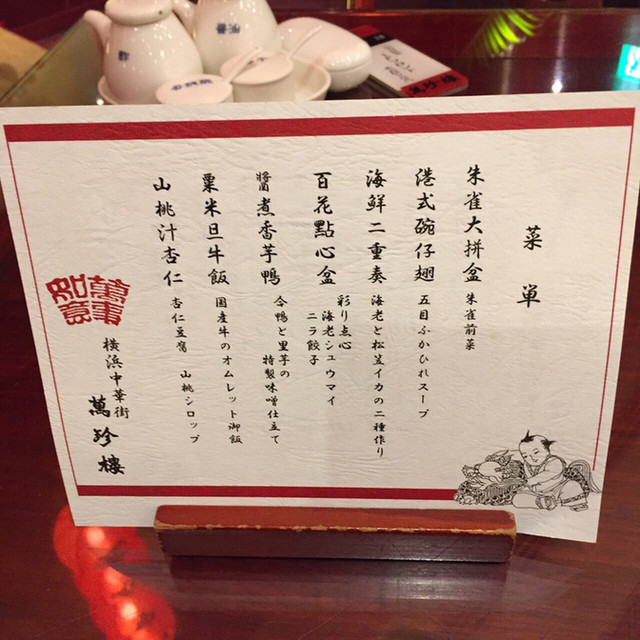 菜単
朱雀大拼盒 朱雀前菜
港式碗仔翅 五目ふかひれスープ
海鮮二重奏 海老と松笠イカの二種作り
百花點心盒 彩り点心
海老シュウマイ
ニラ餃子
醬煮香芋鴨 合鴨と里芋の
特製味噌仕立て
粟米旦牛飯 国産牛のオムレット御飯
山桃汁杏仁 杏仁豆腐 山桃シロップ
横浜中華街
萬珍樓
萬事
如意